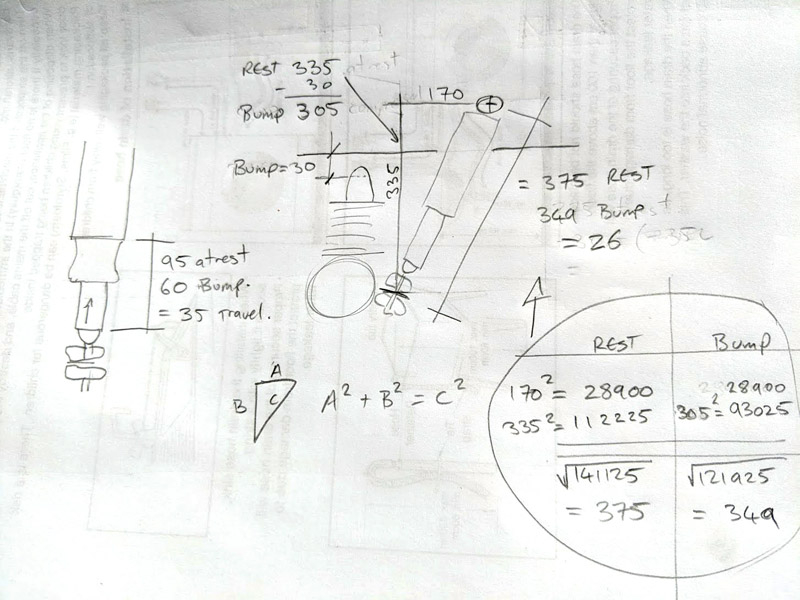 REST 335 at rest
- 30
Bump 305
170
Bump = 30
335
= 375 REST
349 Bump
= 26
=
95 at rest
60 Bump.
= 35 Travel.
A
B
C
A² + B² = C²
REST Bump
170² = 28900 28900
335² = 112225 305² = 93025
√141125 √121925
= 375 = 349